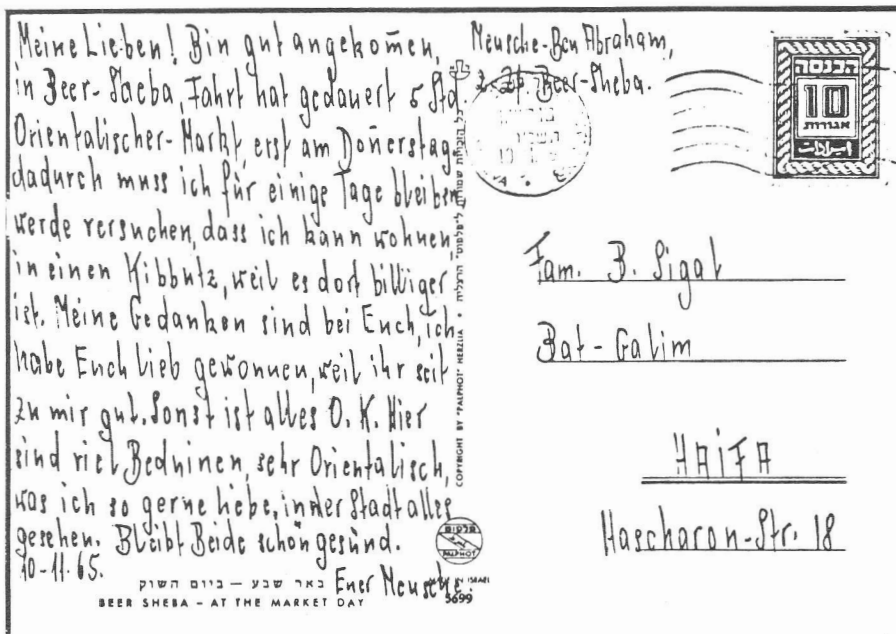 Meine Lieben! Bin gut angekom̄en,
in Beer-Saeba, Fahrt hat gedauert 5 Std.
Orientalischer-Markt, erst am Don̄erstag
dadurch muss ich für einige Tage bleiben
werde versuchen, dass ich kann wohnen,
in einen Kibbutz, weil es dort billiger
ist. Meine Gedanken sind bei Euch, ich
habe Euch lieb gewonnen, weil ihr seit
zu mir gut. Sonst ist alles O.K. Hier
sind viel Beduinen, sehr Orientalisch,
was ich so gerne liebe, in der Stadt alles
gesehen. Bleibt Beide schön gesund.
10-11-65.
Euer Meusche.
באר שבע — ביום השוק
BEER SHEBA – AT THE MARKET DAY
IN ISRAEL
5699
פלפוט
PALPHOT
COPYRIGHT BY "PALPHOT" HERZLIA • כל הזכויות שמורות ל"פלפוט" הרצליה
Meusche-Ben Abraham,
z. Zt. Beer-Sheba.
הכנסה
10
אגורות
Fam. B. Sigal
Bat-Galim
HAIFA
Hascharon-Str. 18